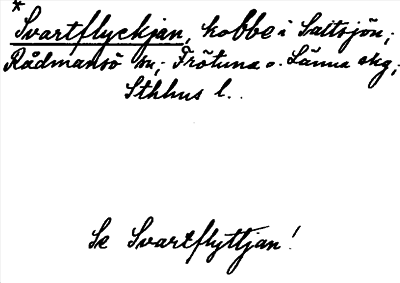 *
Svartflyckjan, kobbe i Saltsjön;
Rådmansö sn; Frötuna o. Länna skg;
Sthhus l..
Se Svartflyttjan!